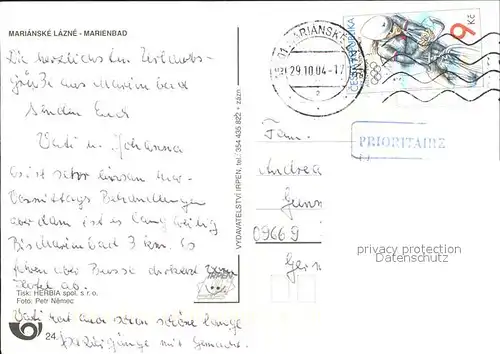 MARIÁNSKÉ LÁZNĚ - MARIENBAD
Die herzlichsten Urlaubs-
grüße aus Marienbad
senden Euch
Vati u. Johanna
es ist sehr
Vormittags Behandlungen
aber dann ist es langweilig
Bis Marienbad 3 km. Es
fahren aber Busse direkt vom
Hotel ab.
Tisk: HERBIA spol. s r.o.
Foto: Petr Němec
24.
Vati hat auch schon schöne lange
Spaziergänge mit gemacht.
VYDAVATELSTVÍ IRPEN, tel.: 354 435 822 • zázn.
MARIÁNSKÉ LÁZNĚ
29.10.04-17
9 Kč
PRIORITAIRE
Fam.
Andrea
09669
privacy protection
Datenschutz